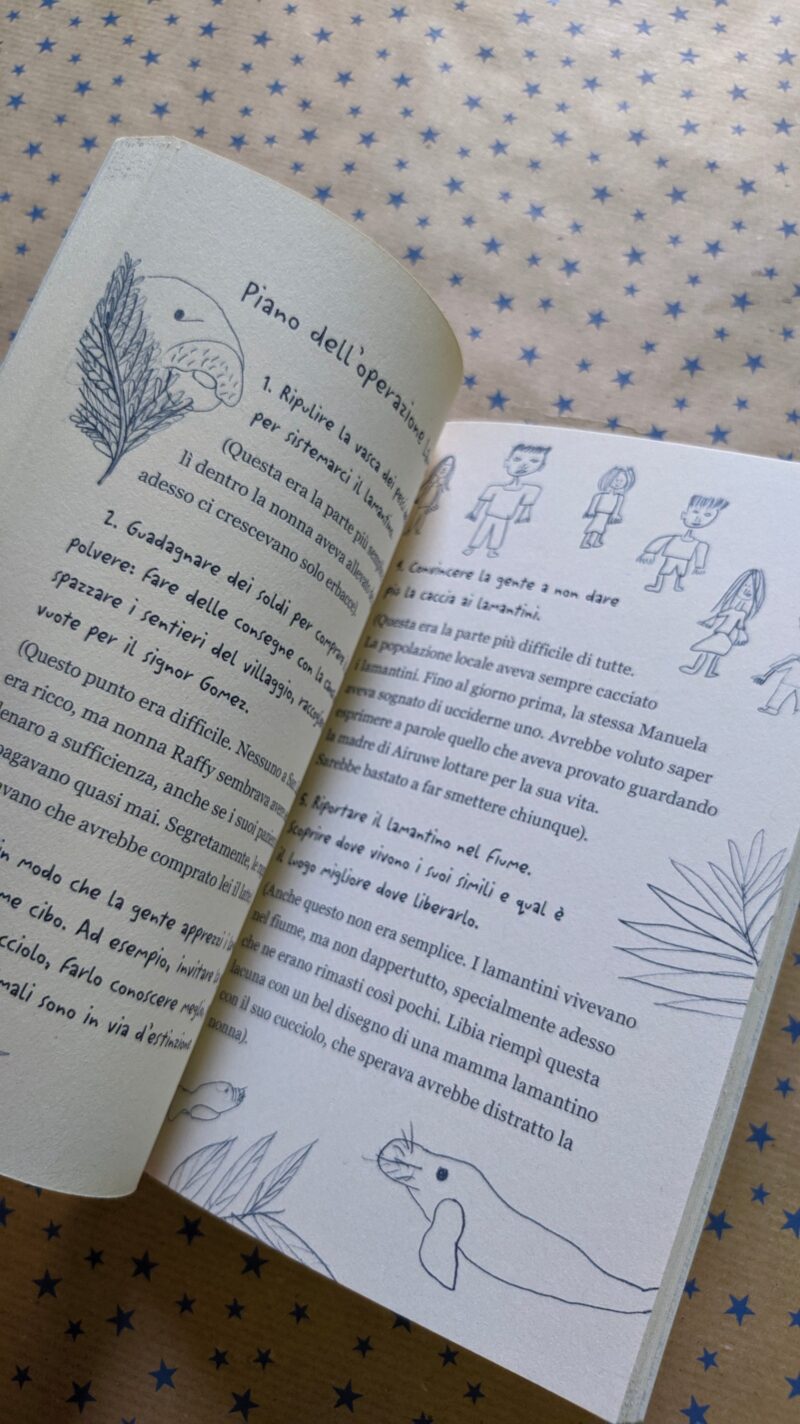 Piano dell'operazione
1. Ripulire la vasca dei pesci
per sistemarci il lamantino.
(Questa era la parte più semplice,
lì dentro la nonna aveva allevato
adesso ci crescevano solo erbacce).
2. Guadagnare dei soldi per comprare
polvere: fare delle consegne con la
spazzare i sentieri del villaggio,
vuote per il signor Gomez.
(Questo punto era difficile. Nessuno a San
era ricco, ma nonna Raffy sembrava avere
denaro a sufficienza, anche se i suoi pazienti
pagavano quasi mai. Segretamente, le
che avrebbe comprato lei il latte
in modo che la gente apprezzi i
me cibo. Ad esempio, invitare
farlo conoscere meglio,
sono in via d'estinzione
4. Convincere la gente a non dare
più la caccia ai lamantini.
(Questa era la parte più difficile di tutte.
La popolazione locale aveva sempre cacciato
i lamantini. Fino al giorno prima, la stessa Manuela
aveva sognato di ucciderne uno. Avrebbe voluto saper
esprimere a parole quello che aveva provato guardando
la madre di Airuwe lottare per la sua vita.
Sarebbe bastato a far smettere chiunque).
5. Riportare il lamantino nel fiume.
Scoprire dove vivono i suoi simili e qual è
il luogo migliore dove liberarlo.
(Anche questo non era semplice. I lamantini vivevano
nel fiume, ma non dappertutto, specialmente adesso
che ne erano rimasti così pochi. Libia riempì questa
lacuna con un bel disegno di una mamma lamantino
con il suo cucciolo, che sperava avrebbe distratto la
nonna).